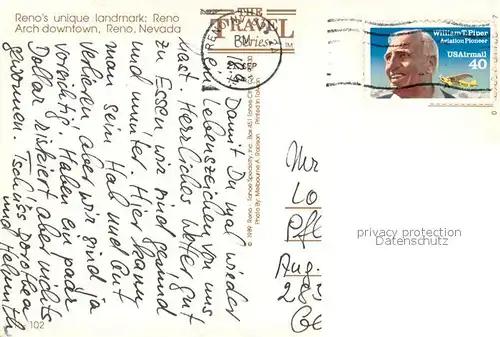 Reno's unique landmark: Reno
Arch downtown, Reno, Nevada
THE
TRAVEL
Series
TM
William T. Piper
Aviation Pioneer
USAirmail
40
Damit Du mal wieder
ein Lebenszeichen von uns
hast Herrliches Wetter gut
zu Essen wir sind gesund
und munter. Hier kann
man sein Hab und Gut
verlieren aber wir sind ja
vorsichtig! Haben ein paar
Dollar riskiert aber nichts
gewonnen. Tschüss Dorothea
und Helmuth
© 1989 Reno - Tahoe Specialty, Inc. Box 451 Tahoe City
Printed in Taiwan
Photo By: Melbourne A. Robison
Mr
Lo
Pfl
Aug.
283
Ge
privacy protection
Datenschutz
102